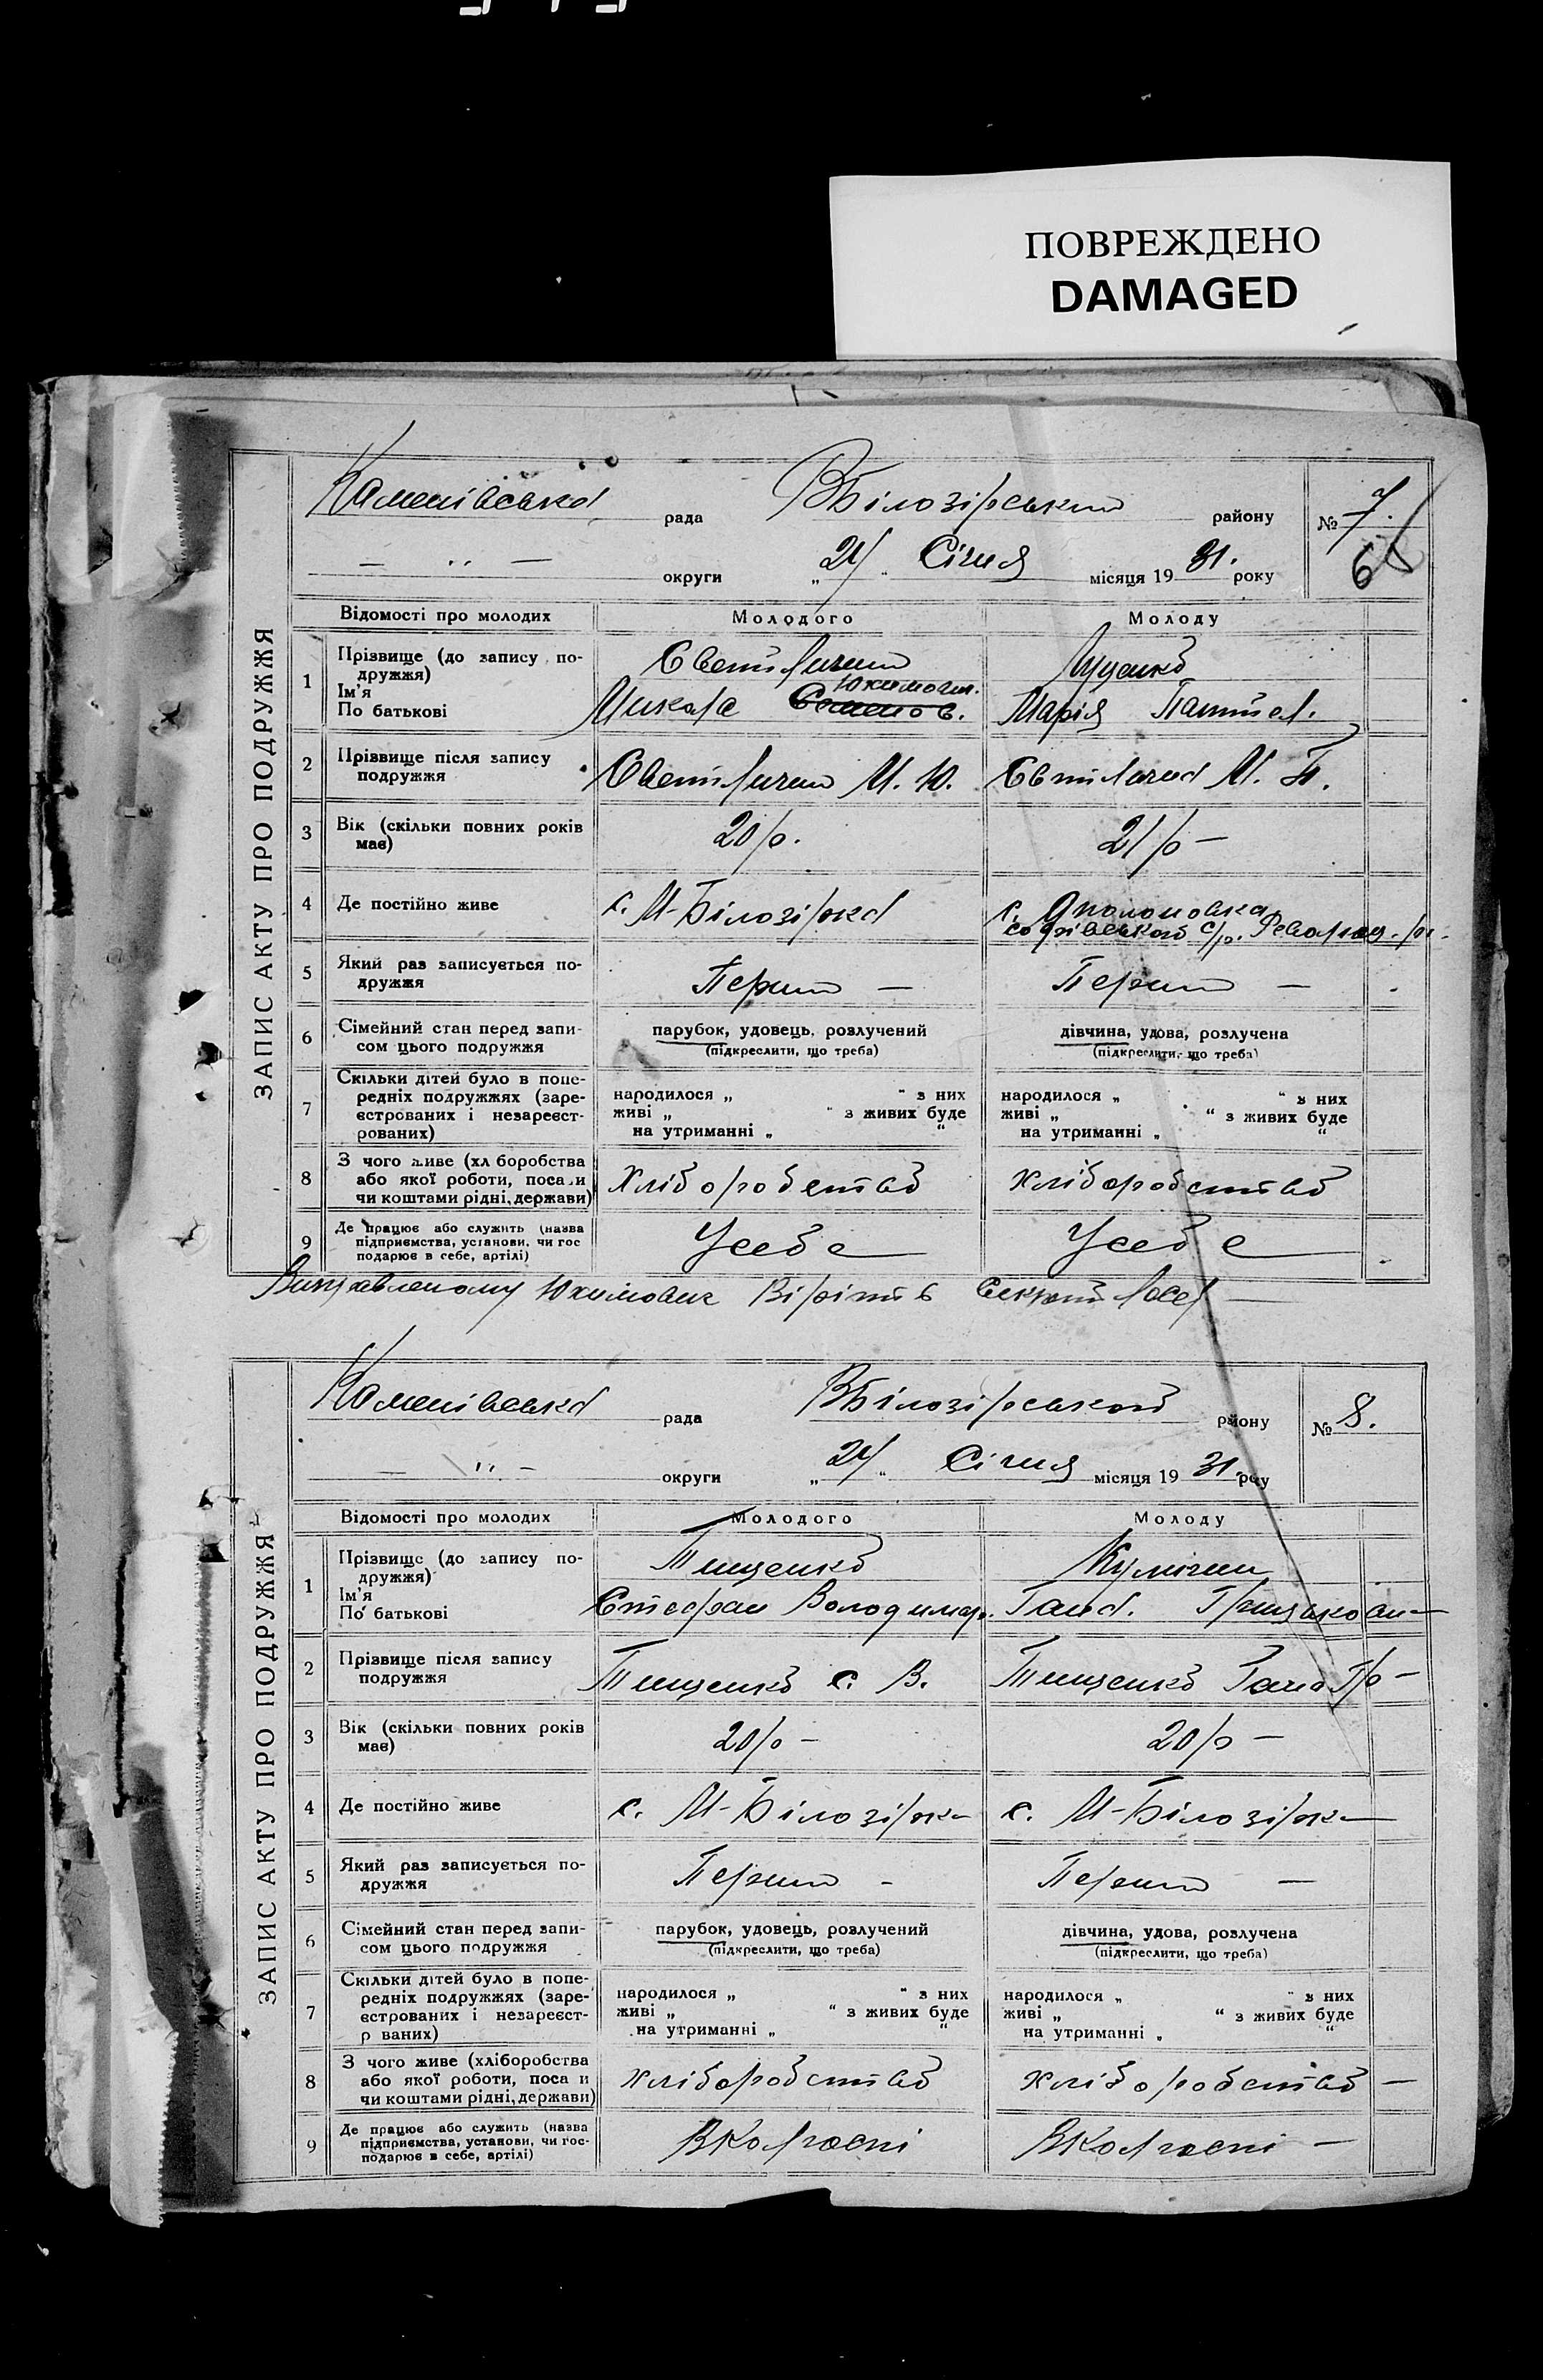 ПОВРЕЖДЕНО
DAMAGED
ЗАПИС АКТУ ПРО ПОДРУЖЖЯ
Каменівська рада ВБілозірський району № 7.
— " — округи „ 24 “ Січня місяця 19 31. року 6
Відомості про молодих Молодого Молоду
1 Прізвище (до запису по-
дружжя)
Ім'я
По батькові
Светличний
Юхимович.
Микола Семенов.
Луценко
Марія Пантел.
2 Прізвище після запису
подружжя
Светличний М. Ю. Світлична М. П.
3 Вік (скільки повних років
має)
20 р. 21 р —
4 Де постійно живе
с. М-Білозірка с. Аполоновка
с/р.
5 Який раз записується по-
дружжя
Перший — Перший —
6 Сімейний стан перед запи-
сом цього подружжя
парубок, удовець, розлучений
(підкреслити, що треба)
дівчина, удова, розлучена
(підкреслити, що треба)
7 Скільки дітей було в попе-
редніх подружжях (заре-
єстрованих і незареєст-
рованих)
народилося „ “ з них
живі „ “ з живих буде
на утриманні „ “
народилося „ “ з них
живі „ “ з живих буде
на утриманні „ “
8 З чого живе (хл боробства
або якої роботи, посади
чи коштами рідні, держави)
Хліборобство хліборобство
9 Де працює або служить (назва
підприємства, установи, чи гос
подарює в себе, артілі)
Усебе Усебе
Виправленому Юхимович Вірить
ЗАПИС АКТУ ПРО ПОДРУЖЖЯ
Каменівська рада ВБілозірськой району № 8.
— " — округи „ 24 “ Січня місяця 19 31. року
Відомості про молодих Молодого Молоду
1 Прізвище (до запису по-
дружжя)
Ім'я
По батькові
Тищенко
Стефан Володимир.
Гана.
2 Прізвище після запису
подружжя
Тищенко С. В. Тищенко Гана Гр —
3 Вік (скільки повних років
має)
20 р — 20 р —
4 Де постійно живе
с. М-Білозірка с. М-Білозірка
5 Який раз записується по-
дружжя
Перший - Перший —
6 Сімейний стан перед запи-
сом цього подружжя
парубок, удовець, розлучений
(підкреслити, що треба)
дівчина, удова, розлучена
(підкреслити, що треба)
7 Скільки дітей було в попе-
редніх подружжях (заре-
єстрованих і незареєст-
р ваних)
народилося „ “ з них
живі „ “ з живих буде
на утриманні „ “
народилося „ “ з них
живі „ “ з живих буде
на утриманні „ “
8 З чого живе (хліборобства
або якої роботи, поса и
чи коштами рідні, держави)
хліборобство хліборобство —
9 Де працює або служить (назва
підприємства, установи, чи гос-
подарює в себе, артілі)
ВКолгоспі ВКолгоспі —